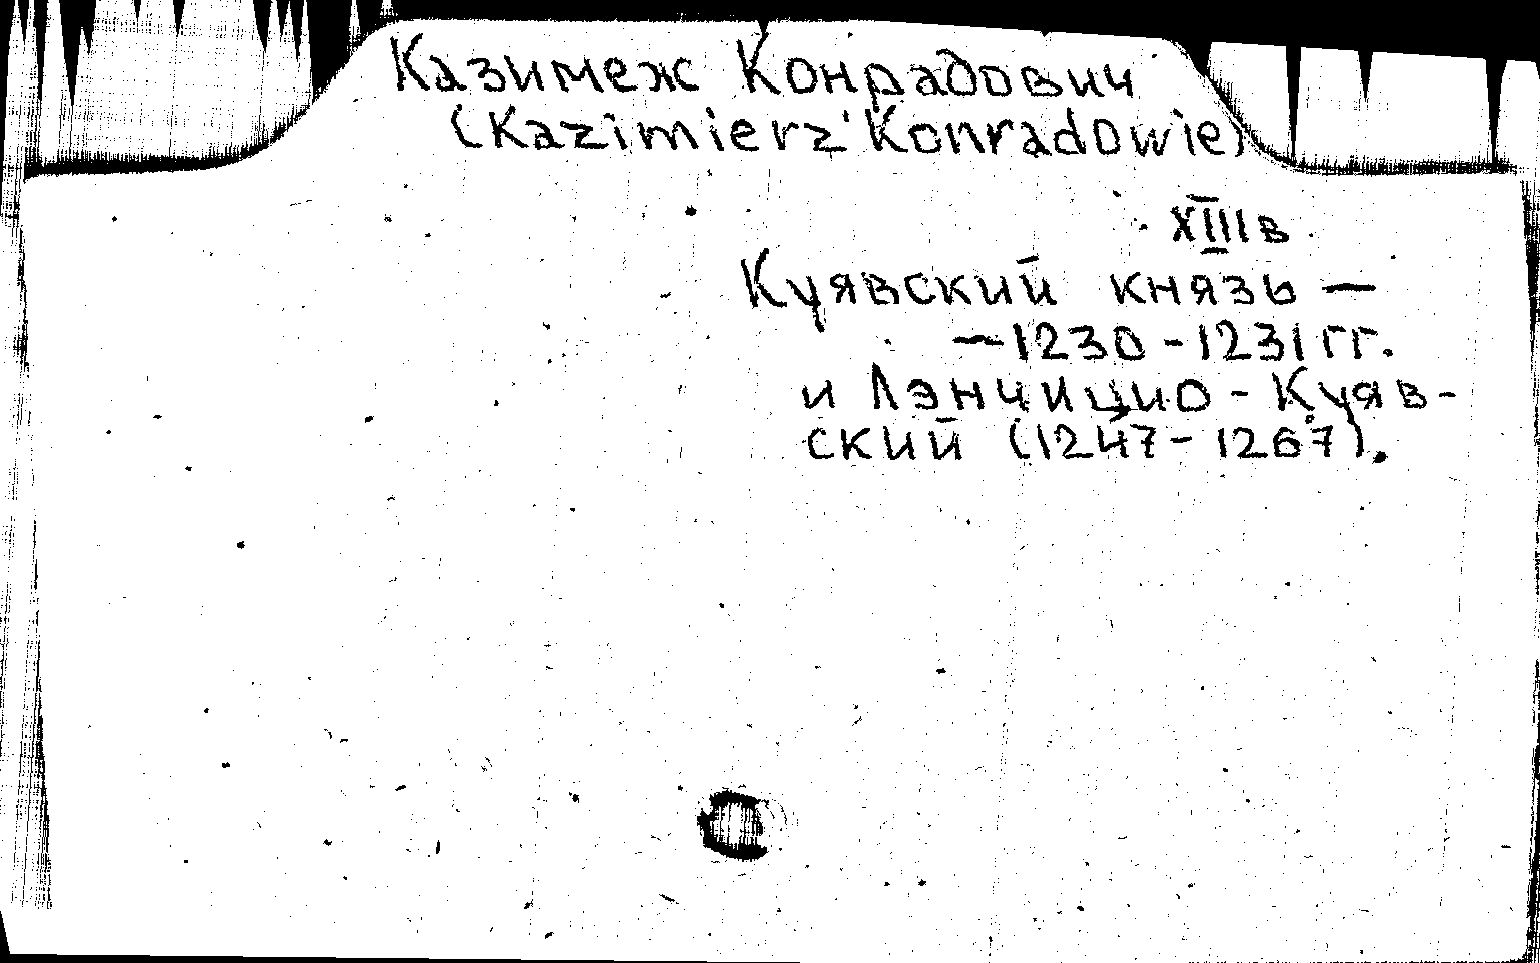 Казимеж Конрадович
(Kazimierz Konradowie)
XIII в
Куявский князь —
— 1230 - 1231 гг.
и Лэнчицио - Куяв-
ский (1247 - 1267).